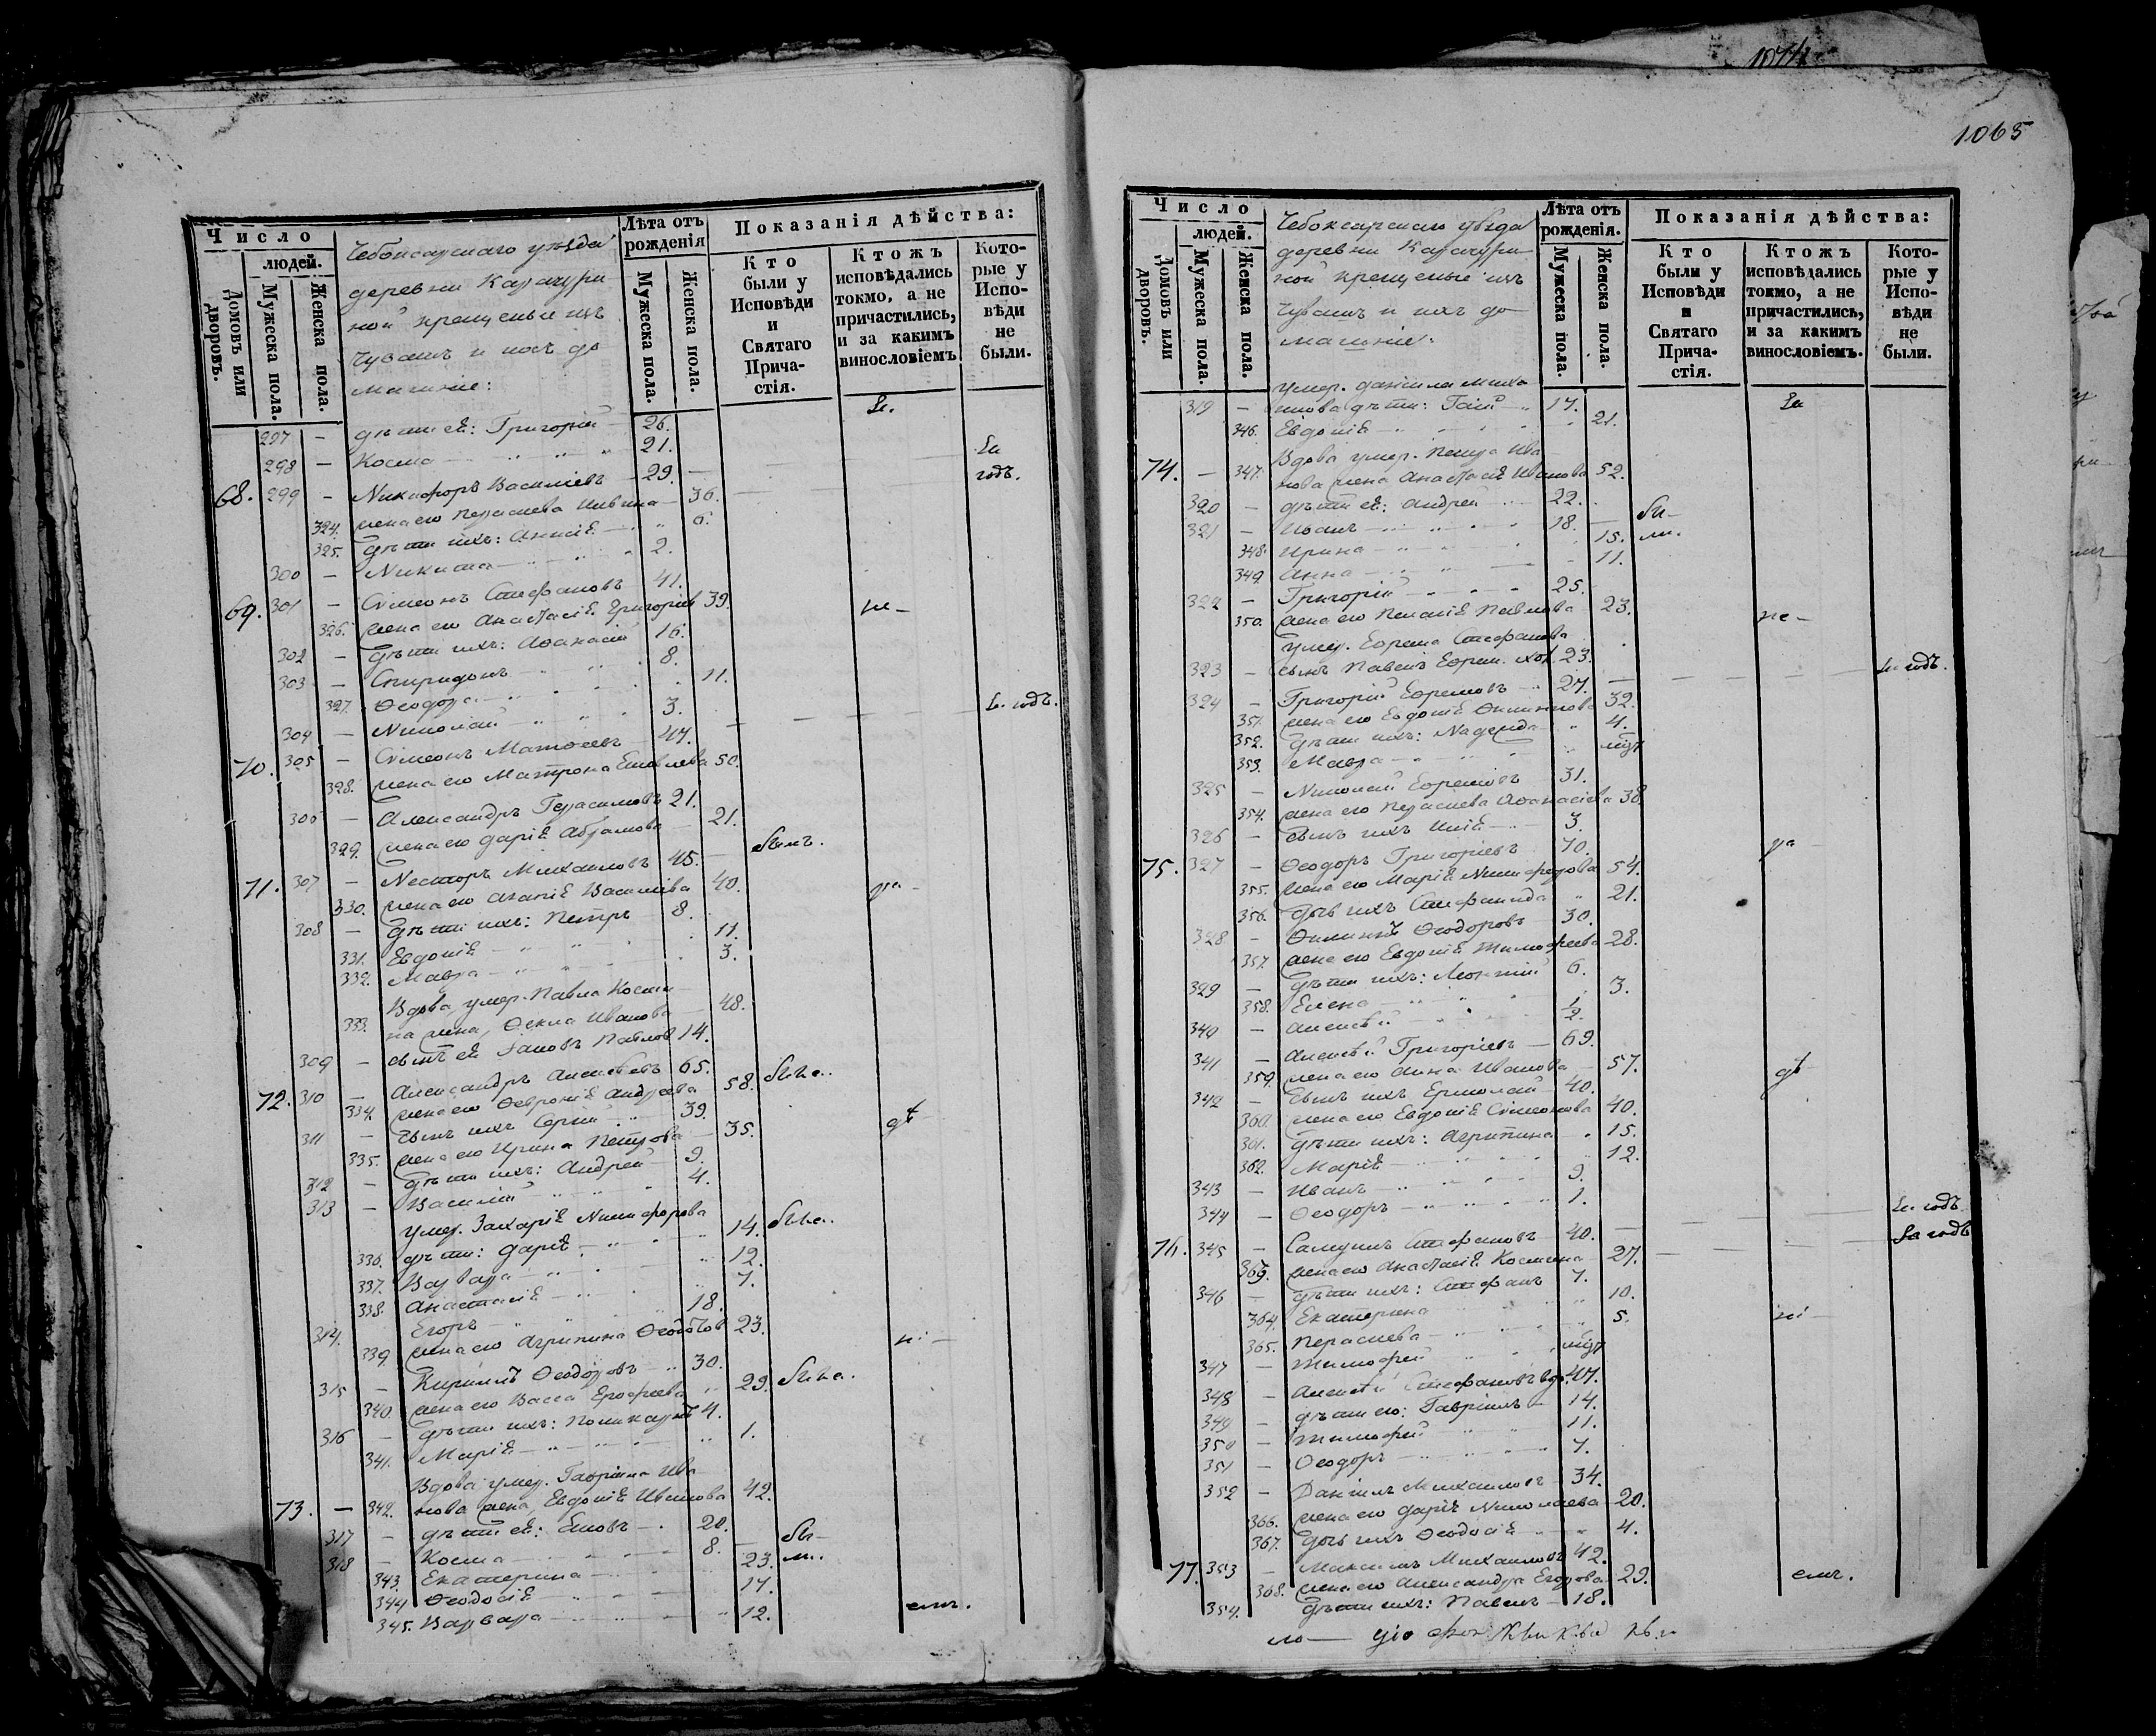 Число
людей.
Домовъ или дворовъ.
Мужеска пола.
Женска пола.
Чебоксарскаго уѣзда
деревни Карачури
ной крещеные изъ
Чувашъ и ихъ до
машніе:
Лѣта отъ рожденія
Мужеска пола.
Женска пола.
Показанія дѣйства:
Кто были у Исповѣди и Святаго Прича- стія.
Ктожъ исповѣдались токмо, а не причастились, и за какимъ винословіемъ
Кото- рые у Испо- вѣди не были.
297 — дѣти ея: Григорій — 26.
298 — Косма — 21.
68. 299 — Никифоръ Василіевъ 29. — За годъ.
324. жена его Параскева 36.
325. дѣти ихъ: Анисія 6.
300 — Никита — 2.
69. 301 — Сѵмеонъ Стефановъ 41.
326. жена его Анастасія Григоріев 39. не —
302 — дѣти ихъ: Аѳанасій 16.
303 — Спиридонъ 8.
327. Ѳеодора 11.
304 — Николай 3.
70. 305 — Сѵмеонъ Матѳеевъ 47. годъ.
328. жена его Матрона 50.
306 — Александръ Герасимовъ 21.
329. жена его Дарія Абрамова 21.
71. 307 — Несторъ Михаиловъ 45. —
330. жена его Агапія Василіева 40.
308 — дѣти ихъ: Петръ 8.
331. Евдокія 11.
332. Мавра 3.
Вдова умер. Павла Косми
333. на жена, Ѳекла Иванова 48.
309 — сынъ ея Іаковъ Павлов 14.
72. 310 — Александръ Алексѣевъ 65.
334. жена его Ѳевронія Андреева 58.
311 — сынъ ихъ Сергій 39.
335. жена его Ирина Петрова 35. дѣ
312 — дѣти ихъ: Андрей 9.
313 — Василій 4.
умер. Захарія Никифорова
336. дѣти: Дарія 14.
337. Варвара 12.
338. Анастасія 7.
314. Егоръ 18.
339. жена его Агрипина 23.
315 — Кириллъ Ѳеодоровъ 30.
340. жена его Васса Ерофеева 29.
316 — дѣти ихъ: Поликарпъ 4.
341. Марія 1.
Вдова умер. Гавріила Ива
73. — 342. нова жена, Евдокія Иванова 42.
317 — дѣти ея: Іаковъ 20.
318 — Косма 8.
343. Екатерина 23.
344 Ѳеодосія 17.
345. Варвара 12.
1065
Число
людей.
Домовъ или дворовъ.
Мужеска пола.
Женска пола.
Чебоксарскаго уѣзда
деревни Карачури-
ной крещеные изъ
Чувашъ и ихъ до-
машніе:
Лѣта отъ рожденія.
Мужеска пола.
Женска пола.
Показанія дѣйства:
Кто были у Исповѣди и Святаго Прича- стія.
Ктожъ исповѣдались токмо, а не причастились, и за какимъ винословіемъ.
Кото- рые у Испо- вѣди не были.
умер. Даніила Миха
319 — илова дѣти: 17. За
346. Евдокія 21.
Вдова умер. Петра Ива
74. — 347. нова жена Анастасія Иванова 52.
320 — дѣти ея: Андрей 22.
321 — Иванъ 18. — бы-
348. Ирина 15. ли.
349. Анна 11.
322 — Григорій 25.
350. жена его Пелагія Павлова 23. не —
умер. Ефрема Стефанова
323 — сынъ Павелъ Ефрем. хол. 23. годъ.
324 — Григорій Ефремовъ 27. —
351. жена его Евдокія 32.
352. дѣти ихъ: Надежда 4.
353. Мавра
325 — Николай Ефремовъ 31.
354. жена его Параскева Аѳанасіева 38.
326 — сынъ ихъ Илія 3.
75. 327 — Ѳеодоръ Григоріевъ 70.
355. жена его Марія Никифорова 54.
356. дочь ихъ Стефанида 21.
328 — Филиппъ Ѳеодоровъ 30.
357. жена его Евдокія Тимофеева 28.
329 — дѣти ихъ: 6.
358. Елена 3.
340 — Алексѣй ½.
341 — Алексѣй Григоріевъ 69.
359. жена его Анна Иванова 57. дѣ
342 — сынъ ихъ Ермолай 40.
360. жена его Евдокія Сѵмеонова 40.
361. дѣти ихъ: Агрипина 15.
362. Марія 12.
343 — Иванъ 9.
344 — Ѳеодоръ 1. годъ.
76. 345 — Самуилъ Стефановъ 40. — За годъ
363. жена его Анастасія Космина 27.
346 — дѣти ихъ: Стефанъ 7.
364. Екатерина 10.
365. Параскева 5.
347 — Тимофей
348 — Алексѣй Стефановъ вдо. 47.
349 — дѣти его: Гавріилъ 14.
350 — Тимофей 11.
351 — Ѳеодоръ 7.
352 — Даніилъ Михаиловъ 34.
366. жена его Дарія Николаева 20.
367. дочь ихъ Ѳеодосія 4.
77. 353 — Максимъ Михаиловъ 42.
368. жена его Александра Егорова 29.
354. дѣти ихъ: Павелъ 18.